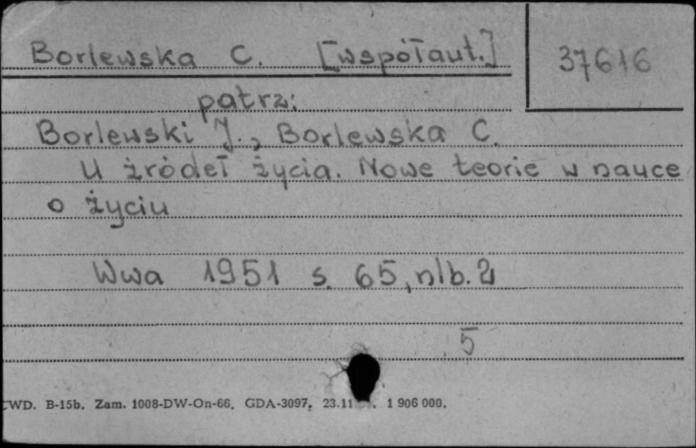 Borlewska C. [współaut.] 37616
patrz:
Borlewski J., Borlewska C.
U źródeł życia. Nowe teorie w nauce
o życiu
Wwa 1951 s. 65, nlb. 2
5
CWD. B-15b. Zam. 1008-DW-On-66. GDA-3097. 23.11 1 906 000.